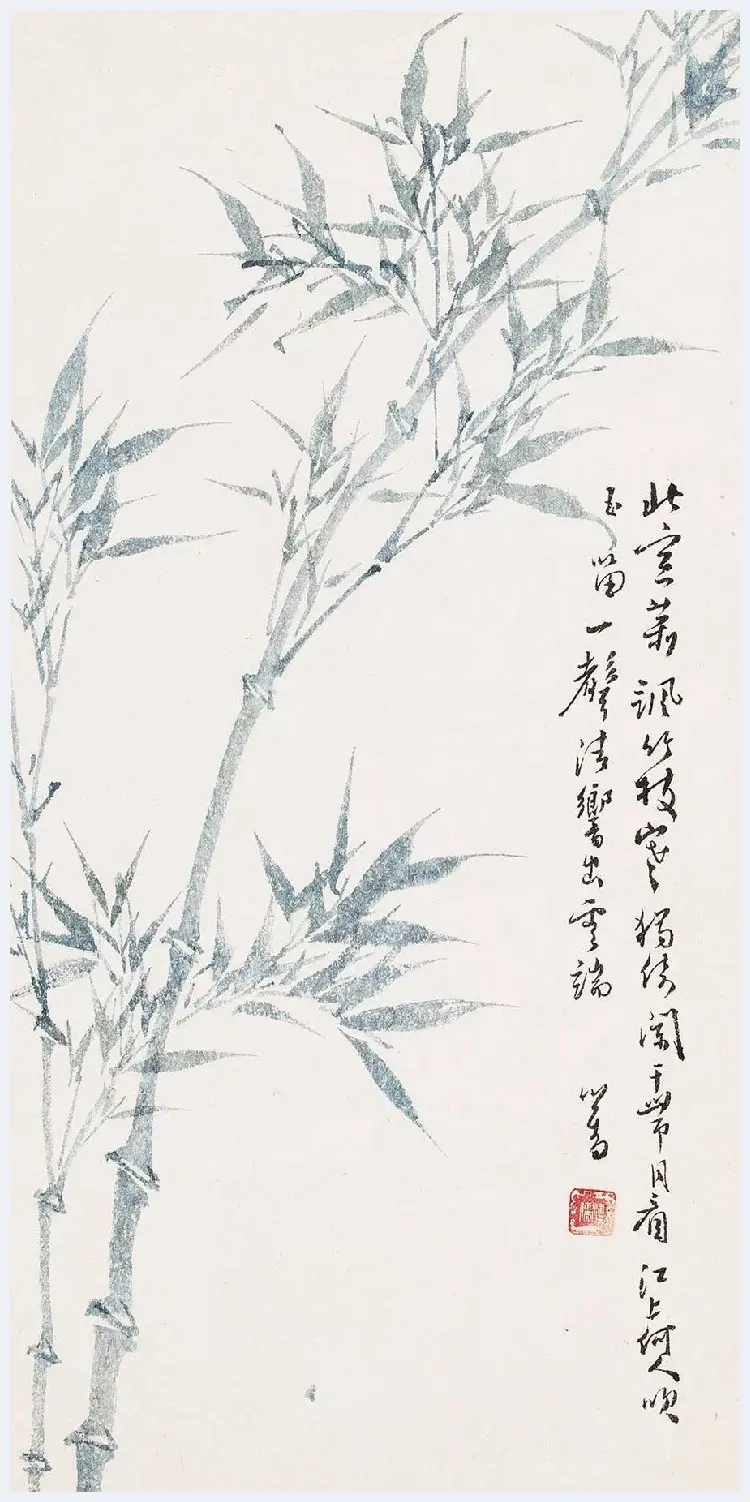 北窗蕭颯竹枝寒獨倚闌干帶月看江上何人吹
玉笛一聲清響出雲端 心畬
溥儒